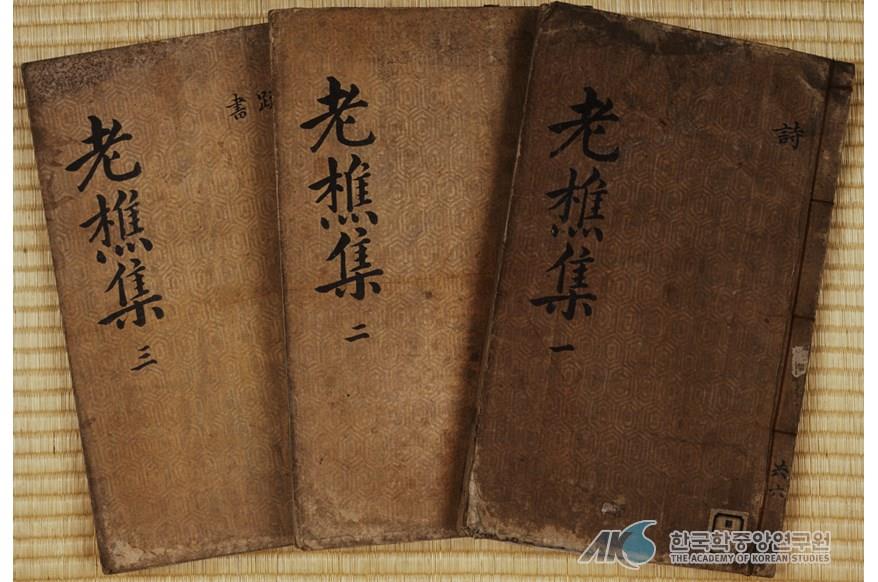 詩
老樵集 一
共六
老樵集 二
書
老樵集 三
AKS 한국학중앙연구원
THE ACADEMY OF KOREAN STUDIES